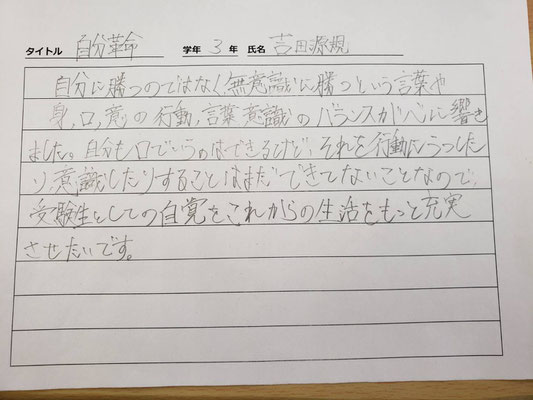 タイトル 自分革命 学年 3 年 氏名 吉田源規
自分に勝つのではなく、無意識に勝つという言葉や
身、口、意の行動、言葉、意識のバランスが心に響き
ました。自分も口でいうのはできるけど、それを行動にうつした
り、意識したりすることはまだできてないことなので、
受験生としての自覚をこれからの生活をもっと充実
させたいです。